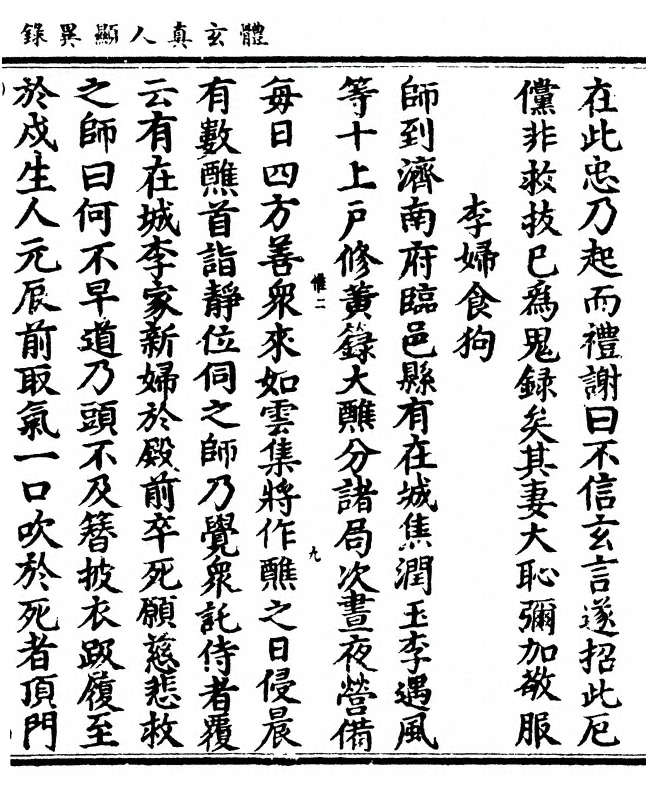 體玄真人顯異錄
在此忠乃起而禮謝曰不信玄言遂招此厄
儻非救技已為鬼録矣其妻大恥彌加敬服
李婦食狗
師到濟南府臨邑縣有在城焦潤玉李遇風
等十上戶修黃籙大醮分諸局次晝夜營備
惟二
九
每日四方善衆來如雲集將作醮之日侵晨
有數醮首詣靜位伺之師乃覺衆託侍者覆
云有在城李家新婦於殿前卒死願慈悲救
之師曰何不早道乃頭不及簪披衣趿履至
於戍生人元辰前取氣一口吹於死者頂門